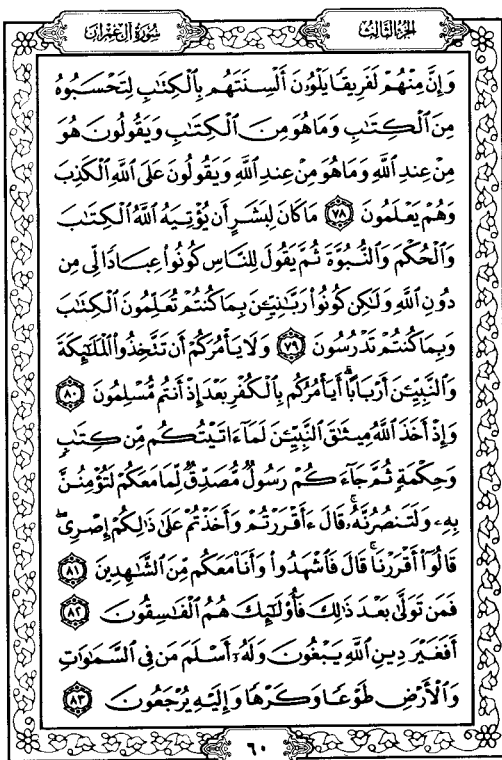 سُورَةُ آلِ عِمْرَانَ
الجُزْءُ الثَّالِثُ
وَإِنَّ مِنْهُمْ لَفَرِيقًا يَلْوُۥنَ أَلْسِنَتَهُم بِٱلْكِتَٰبِ لِتَحْسَبُوهُ
مِنَ ٱلْكِتَٰبِ وَمَا هُوَ مِنَ ٱلْكِتَٰبِ وَيَقُولُونَ هُوَ
مِنْ عِندِ ٱللَّهِ وَمَا هُوَ مِنْ عِندِ ٱللَّهِ وَيَقُولُونَ عَلَى ٱللَّهِ ٱلْكَذِبَ
وَهُمْ يَعْلَمُونَ ٧٨ مَا كَانَ لِبَشَرٍ أَن يُؤْتِيَهُ ٱللَّهُ ٱلْكِتَٰبَ
وَٱلْحُكْمَ وَٱلنُّبُوَّةَ ثُمَّ يَقُولَ لِلنَّاسِ كُونُوا۟ عِبَادًا لِّى مِن
دُونِ ٱللَّهِ وَلَٰكِن كُونُوا۟ رَبَّٰنِيِّۦنَ بِمَا كُنتُمْ تُعَلِّمُونَ ٱلْكِتَٰبَ
وَبِمَا كُنتُمْ تَدْرُسُونَ ٧٩ وَلَا يَأْمُرَكُمْ أَن تَتَّخِذُوا۟ ٱلْمَلَٰٓئِكَةَ
وَٱلنَّبِيِّۦنَ أَرْبَابًا ۗ أَيَأْمُرُكُم بِٱلْكُفْرِ بَعْدَ إِذْ أَنتُم مُّسْلِمُونَ ٨٠
وَإِذْ أَخَذَ ٱللَّهُ مِيثَٰقَ ٱلنَّبِيِّۦنَ لَمَآ ءَاتَيْتُكُم مِّن كِتَٰبٍ
وَحِكْمَةٍ ثُمَّ جَآءَكُمْ رَسُولٌ مُّصَدِّقٌ لِّمَا مَعَكُمْ لَتُؤْمِنُنَّ
بِهِۦ وَلَتَنصُرُنَّهُۥ ۚ قَالَ ءَأَقْرَرْتُمْ وَأَخَذْتُمْ عَلَىٰ ذَٰلِكُمْ إِصْرِى ۖ
قَالُوٓا۟ أَقْرَرْنَا ۚ قَالَ فَٱشْهَدُوا۟ وَأَنَا۠ مَعَكُم مِّنَ ٱلشَّٰهِدِينَ ٨١
فَمَن تَوَلَّىٰ بَعْدَ ذَٰلِكَ فَأُو۟لَٰٓئِكَ هُمُ ٱلْفَٰسِقُونَ ٨٢
أَفَغَيْرَ دِينِ ٱللَّهِ يَبْغُونَ وَلَهُۥٓ أَسْلَمَ مَن فِى ٱلسَّمَٰوَٰتِ
وَٱلْأَرْضِ طَوْعًا وَكَرْهًا وَإِلَيْهِ يُرْجَعُونَ ٨٣
٦٠